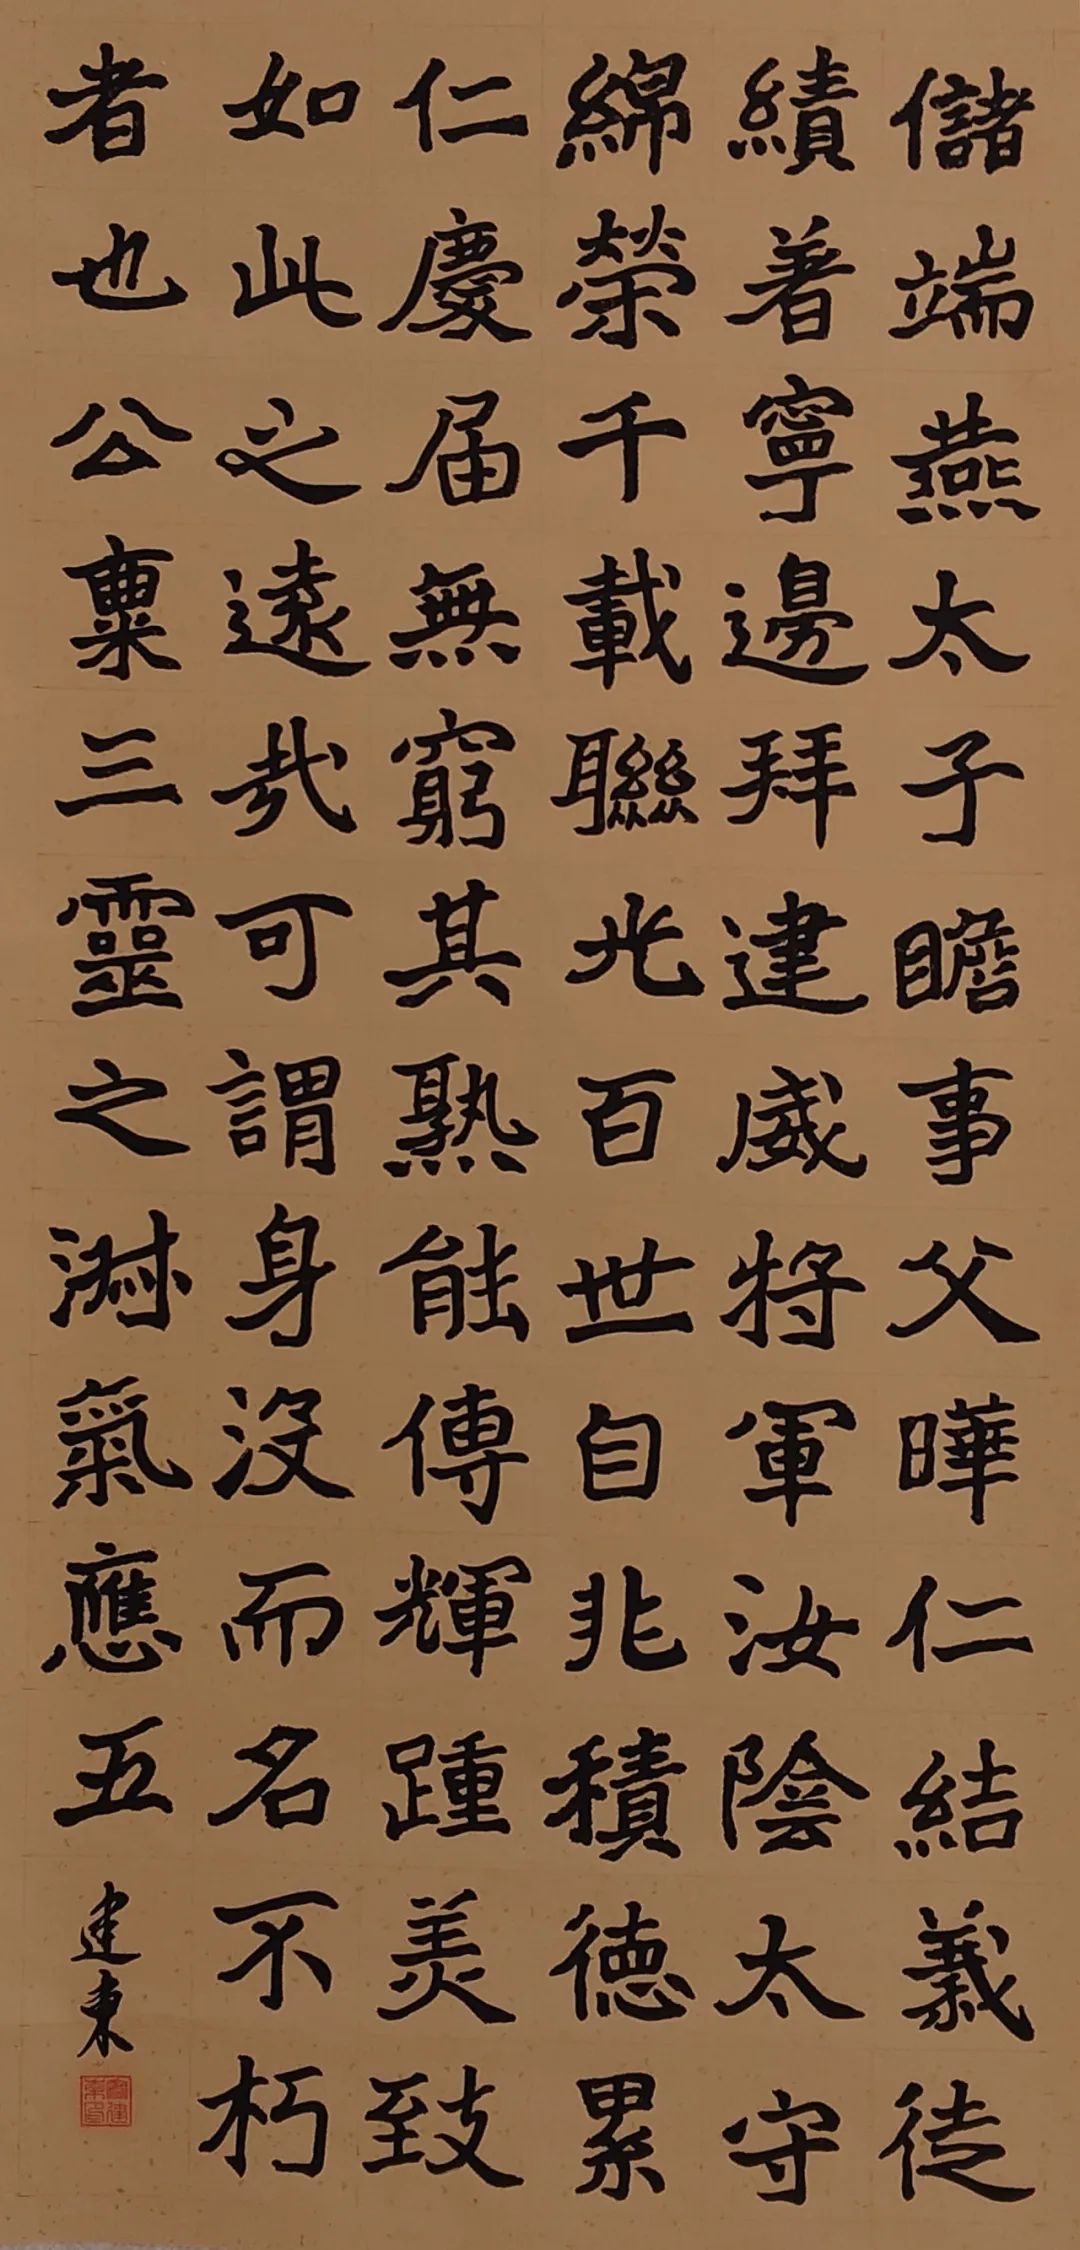 儲端燕太子瞻事父曄仁結義徒
績著寧邊拜建威將軍汝陰太守
綿榮千載聯光百世自非積德累
仁慶届無窮其熟能傳輝踵美致
如此之遠哉可謂身沒而名不朽
者也公稟三靈之淑氣應五
建東